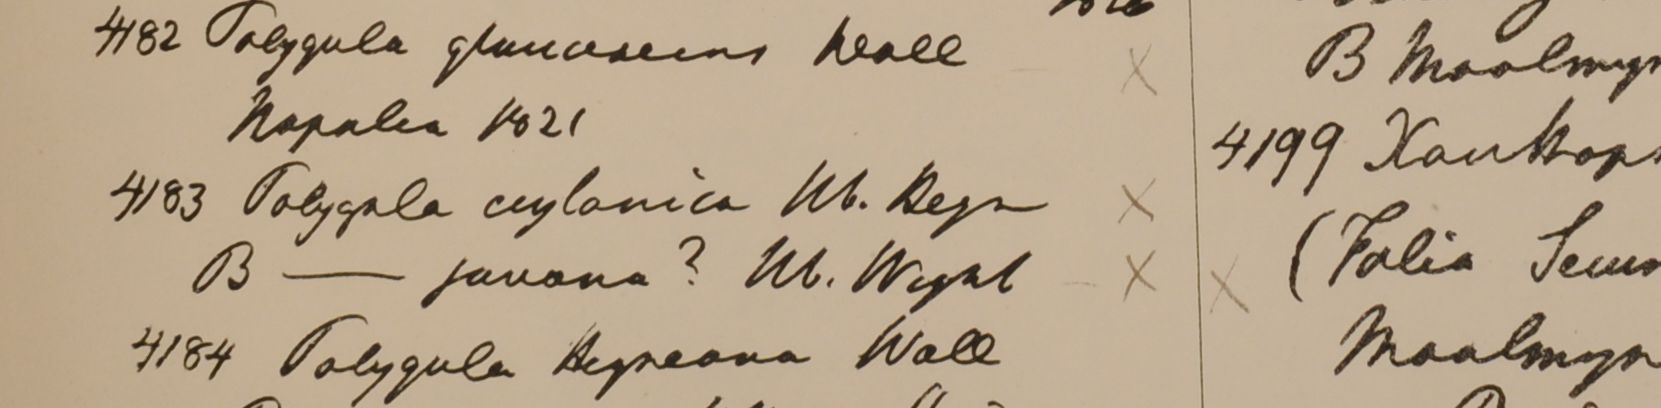 4182 Polygala glaucescens Wall
Napalia 1821
4183 Polygala ceylanica Hb. Heyn
B — javana? Hb. Wight
4184 Polygala Heyneana Wall
B Moolmyn
4199 Xanthop
(Folia
Moolmyn